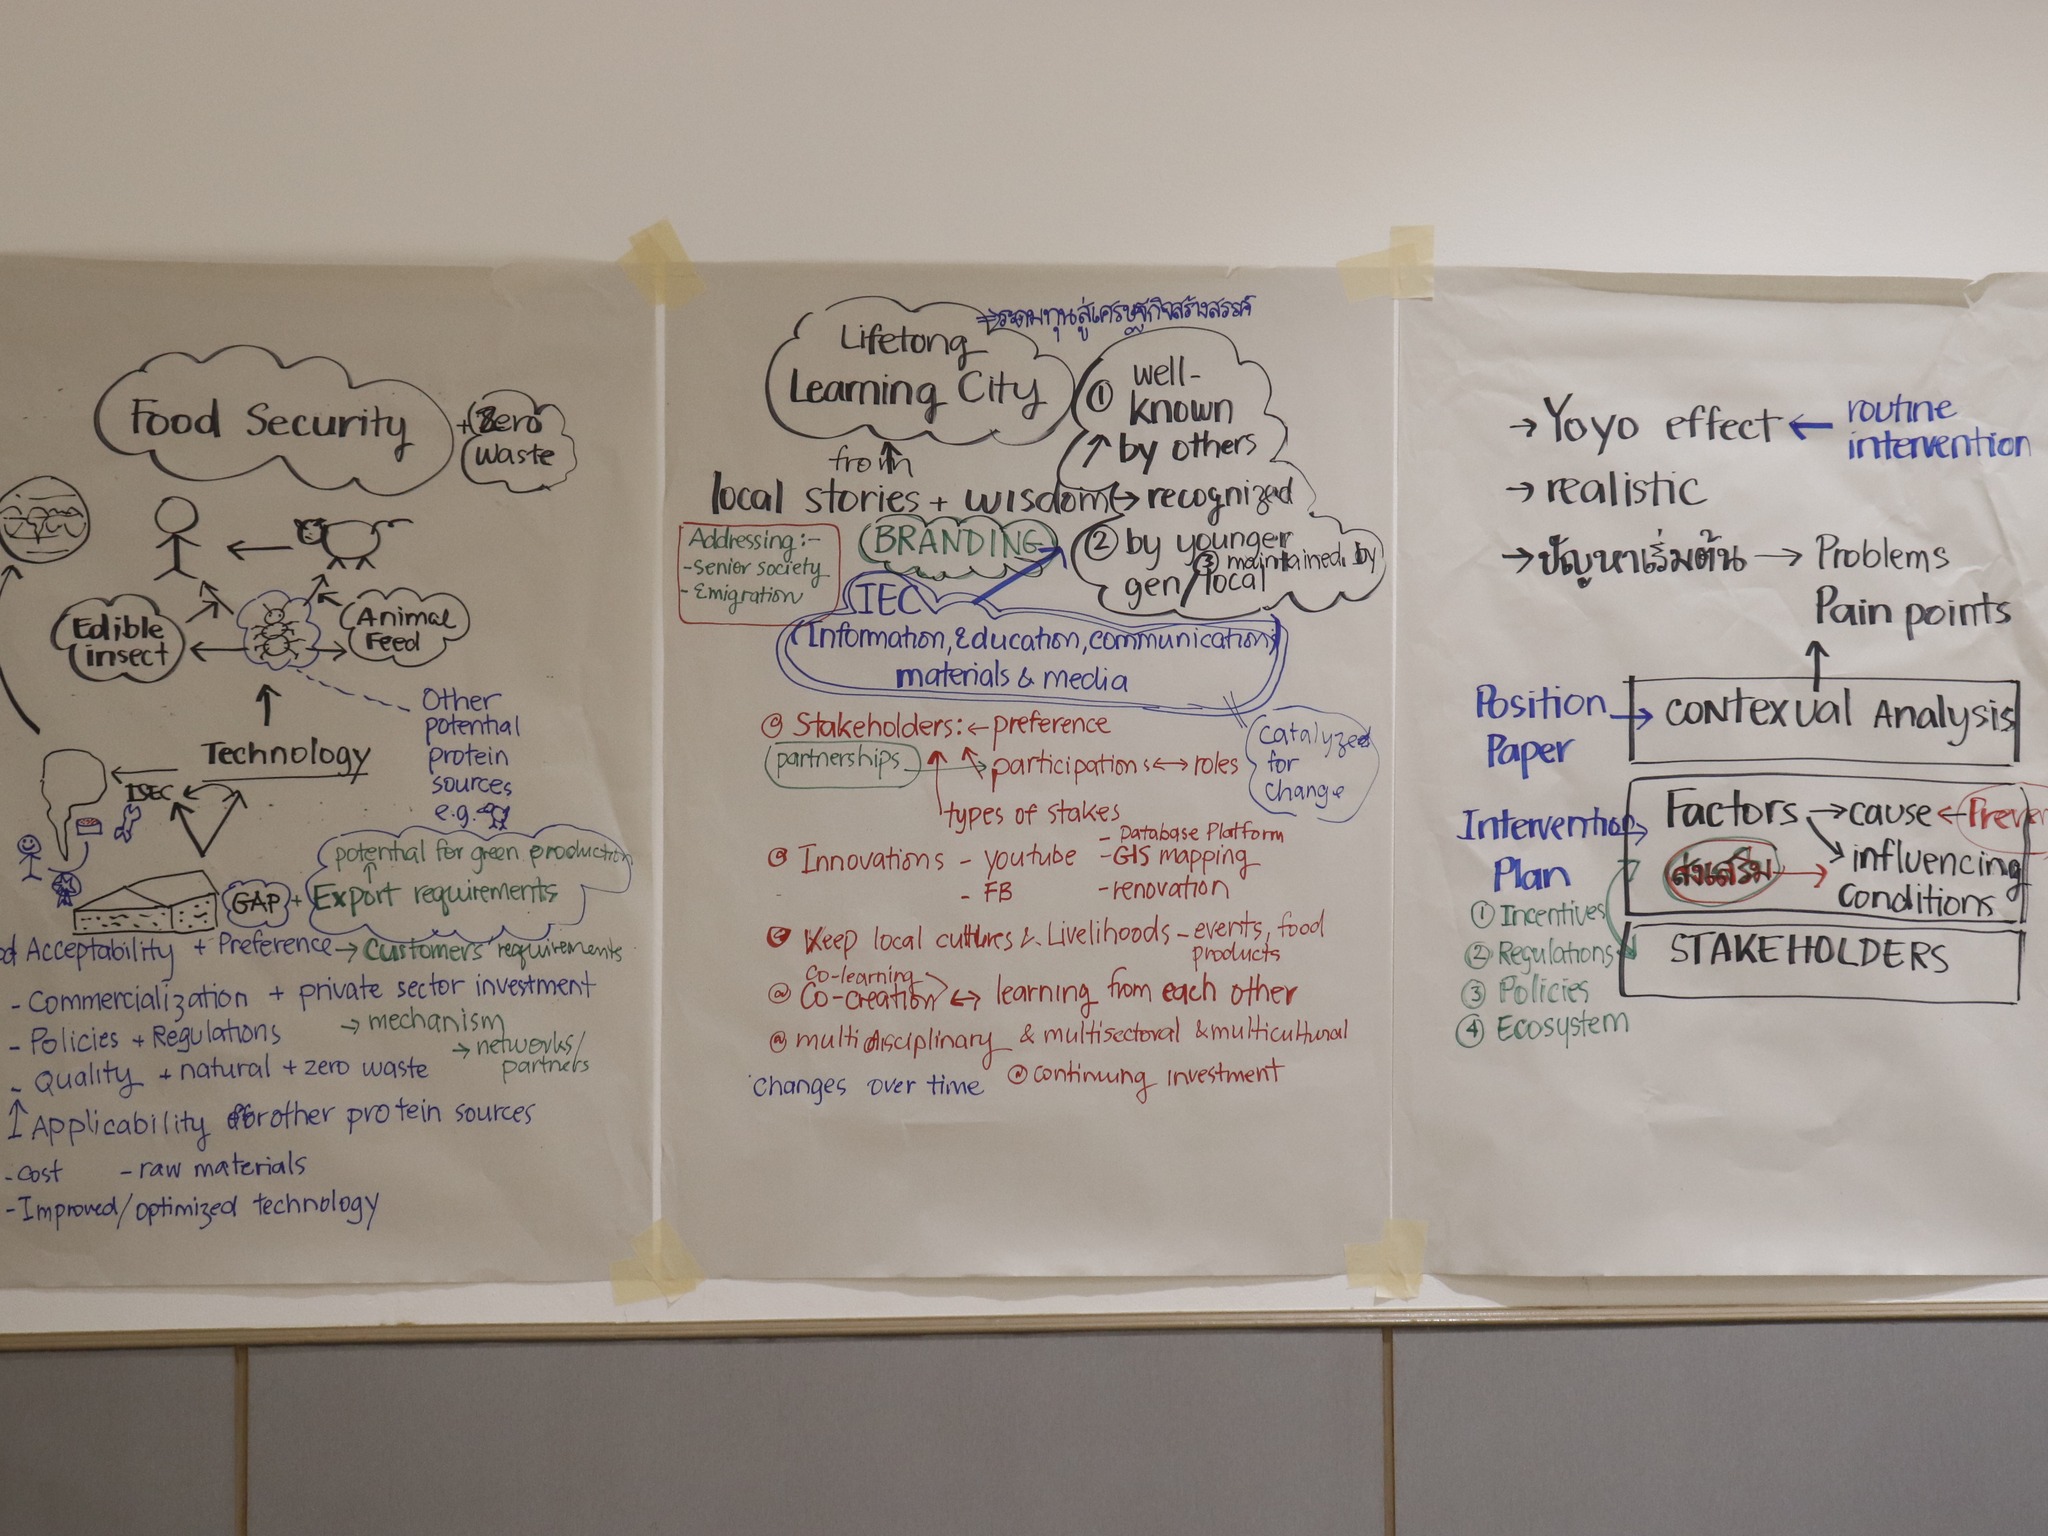 Food Security
+ Zero
waste
Edible
insect
Animal
Feed
Other
potential
protein
sources
e.g.
Technology
ISEC
potential for green production
GAP + Export requirements
Acceptability + Preference → Customers' requirements
- Commercialization + private sector investment
- Policies + Regulations → mechanism
→ networks/
partners
- Quality + natural + zero waste
↑ Applicability for other protein sources
- cost - raw materials
- Improved/optimized technology
⇒ระดมทุนสู่เศรษฐกิจสร้างสรรค์
Lifelong
Learning City
① well-
known
↑ by others
from
local stories + wisdom → recognized
② by younger
gen/local
③ maintained by
BRANDING
Addressing:-
- Senior society
- Emigration
IEC
(Information, Education, communication)
materials & media
Catalyzed
for
change
@ Stakeholders: ← preference
partnerships → participations ↔ roles
types of stakes
@ Innovations - youtube
- FB
- Database Platform
- GIS mapping
- renovation
Keep local cultures & Livelihoods - events, food
products
Co-learning
@ Co-creation ↔ learning from each other
@ multidisciplinary & multisectoral & multicultural
changes over time @ continuing investment
→ Yoyo effect ← routine
intervention
→ realistic
→ ปัญหาเริ่มต้น → Problems
Pain points
Position
Paper
CONTEXUAL Analysis
Intervention
Plan
Factors → cause ← Preven
ส่งเสริม → influencing
conditions
① Incentives
② Regulations
③ Policies
④ Ecosystem
STAKEHOLDERS